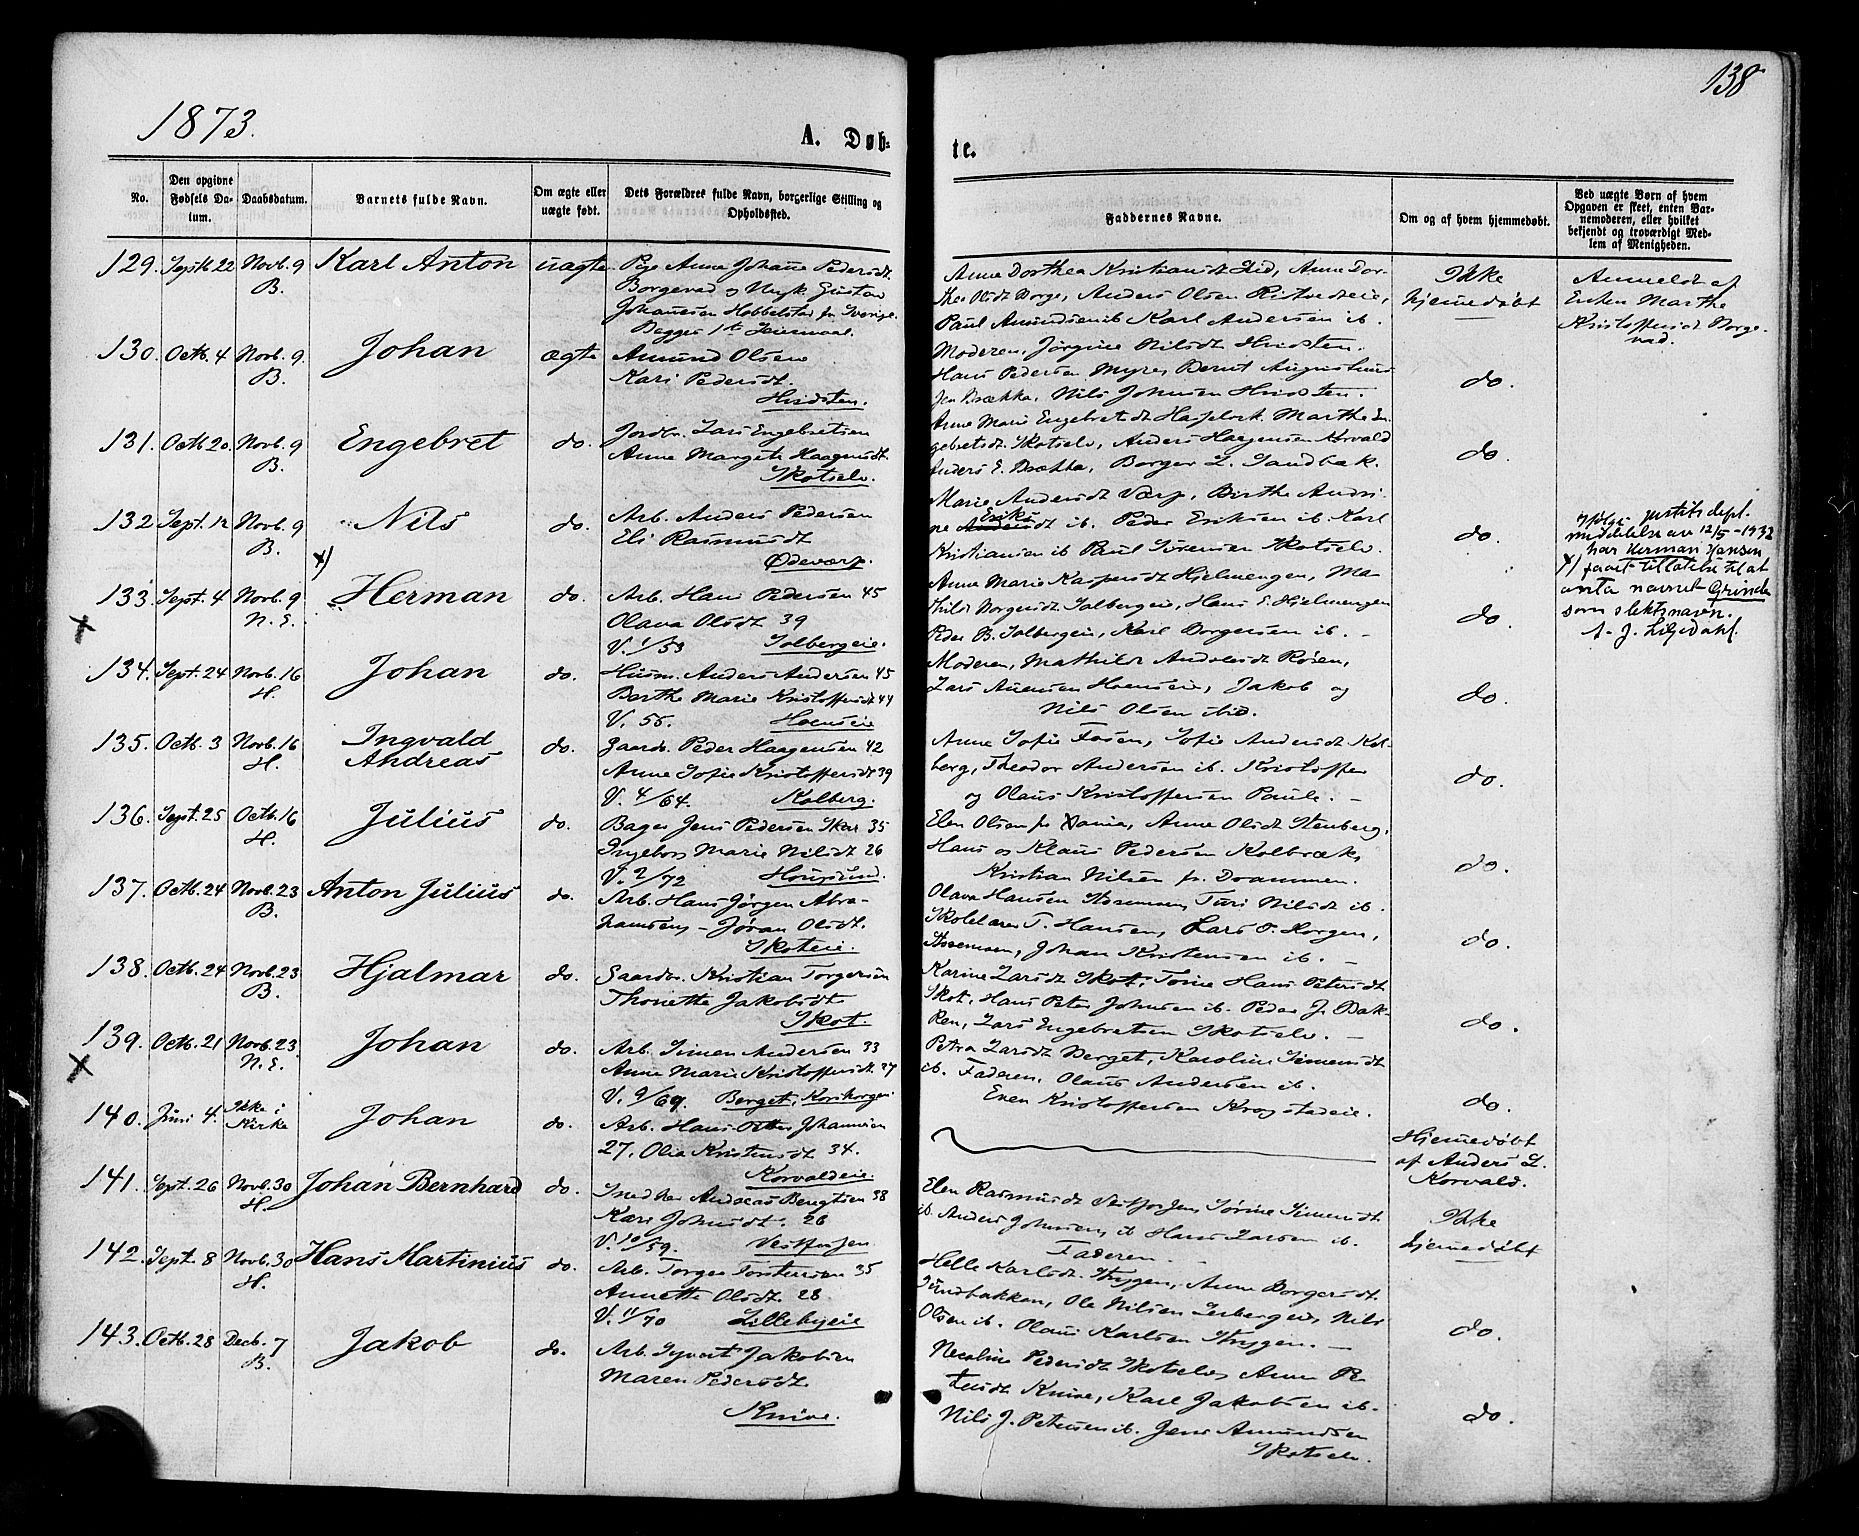 138
1873.
A. Døb-
te.
No.
Den opgivne Fødsels Datum.
Daabsdatum.
Barnets fulde Navn.
Om ægte eller uægte født.
Dets Forældres fulde Navn, borgerlige Stilling og Opholdssted.
Faddernes Navne.
Om og af hvem hjemmedøbt.
Ved uægte Børn af hvem Opgaven er skeet, enten Barnemoderen, eller hvilket bekjendt og troværdigt Medlem af Menigheden.
129. Septb 22 Novb. 9 B. Karl Anton uægte
Pige Anne Johanne Pedersdt.
Borgevad og Ungk. Gustav
Johannesen Hobbelstad fr. Sverige.
Begges 1ste Leiermaal.
Anne Dorthea Kristiansdt. Lid, Anne Dor-
thea Olsdt Borge, Anders Olsen
Paul Amundsen ib. Karl Andersen ib.
Ikke
hjemmedøbt
Anmeldt af
Enken Marthe
Kristoffersdt Borge-
vad.
130. Octb. 4 Novb. 9 B. Johan ægte
Amund Olsen
Kari Pedersdt.
Hvidsten.
Moderen, Jørgine Nilsdt Hvidsten.
Hans Pedersen Myres Bernt Augustinus-
sen Brække, Nils Johnsen Hvidsten.
do.
131. Octb 20. Novb. 9 B. Engebret do.
Jordbr. Lars Engebretsen
Anne Margete Haagensdt.
Skotselv.
Anne Marie Engebretsdt Marthe En-
gebretsdt. Skotselv, Anders Haagensen Korvald
Anders E. Brække, Borger L. Sandbæk.
do.
132 Sept. 12 Novb. 9 B. Nils do.
Arb. Anders Pedersen
Eli Rasmusdt
Ødeværp.
Marie Andersdt Værp, Berthe Andri-
Eriks
ne Andersdt ib. Peder Eriksen ib. Karl
Kristiansen ib Paul Sørensen Skotselv.
do.
x)
133. Sept. 4 Novb. 9 N.E. Herman do.
x
Arb. Hans Pedersen 45
Olava Olsdt 39
V. 1/53 Solbergeie.
Anne Marie Kaspersdt Hjelmengen, Ma-
thilde Borgersdt Solbergeie, Hans E. Hjelmengen
Peder B. Solbergeie, Karl Borgersen ib.
do.
Ifølge justitsdepl.
meddelelse av 12/5-1932
har Herman Hansen
x) faaet tillatelse til at
anta navnet Grinda
som slektsnavn.
A. J. Liljedahl.
134. Sept. 24 Novb. 16 H. Johan do.
Husm. Anders Andersen 45
Berthe Marie Kristoffersdt 44
V. 55. Hoenseie
Moderen, Mathilde Andersdt Rosen,
Lars Hoenseie, Jakob og
Nils Olsen ibid.
do.
135. Octb. 3 Novb. 16 H. Ingvald
Andreas do.
Gaardbr. Peder Haagensen 42
Anne Sofie Kristoffersdt 39
V. 4/64. Kolberg.
Anne Sofie Fosen, Sofie Andersdt Kol-
berg, Theodor Andersen ib. Kristoffer
og Olaus Kristoffersen Paule.
do.
136. Sept. 25 Octb. 16 H. Julius do.
Bager Jens Pedersen Skar 35
Ingeborg Marie Nilsdt 26
V. 2/72 Hougsund.
Elen Olsen fr. Anne Olsdt Stenberg,
Hans og Klaus Pedersen Kolbræk,
Kristian Nilsen fr. Drammen.
do.
137. Octb. 24 Novb. 23 B. Anton Julius do.
Arb. Hans Jørgen Abra-
hamsen, - Jøran Olsdt.
Skoteie.
Olava Hansen Turi Nilsdt ib.
Skolelærer T. Hansen, Lars P. Horgen,
Johan Kristensen ib.
do.
138. Octb. 24 Novb. 23 B. Hjalmar do.
Gaardbr. Kristian Torgersen
Thonette Jakobsdt
Skot.
Karine Larsdt Skot, Torine Hans Petersdt
Skot, Hans Peter Johnsen ib. Peder J. Bak-
ken, Lars Engebretsen Skotselv.
do.
139. Octb. 21 Novb. 23 N.E. Johan do.
x
Arb. Simen Andersen 33
Anne Marie Kristoffersdt. 27
V. 9/69. Berget, Korshorgen
Petra Larsdt Berget, Karoline Simensdt
ib. Faderen, Olaus Andersen ib.
Even Kristoffersen Krogstadeie.
do.
140. Juni 4. Ikke i Kirke Johan do.
Arb. Hans Peter Johannesen
27, Olia Kristensdt 34.
Korvaldeie.
Hjemmedøbt
af Anders L.
Korvald.
141. Sept. 26 Novb. 30 H. Johan Bernhard do.
Snedker Andreas Bengtsen 38
Kari Johnsdt. 26
V. 10/59. Vestfossen
Elen Rasmusdt Vestfossen, Sørine Simensdt
ib. Anders Johnsen ib Hans Larsen ib.
Faderen.
Ikke
hjemmedøbt
142. Sept. 8 Novb. 30 H. Hans Martinius do.
Arb. Torger Torstensen 35
Annette Olsdt. 28
V. 11/70 Lillebyeie
Helle Karlsdt. Stryggen, Anne Borgersdt
Sundbakken, Ole Nilsen Nils
Olsen ib. Olaus Karlsen Stryggen.
do.
143. Octb. 28 Decb. 7 B. Jakob do.
Arb. Syvert Jakobsen
Maren Pedersdt
Knive.
Nicoline Pedersdt Skotselv, Anne Pe-
tersdt Knive, Karl Jakobsen ib.
Nils J. Petersen ib. Jens Amundsen
Skotselv.
do.